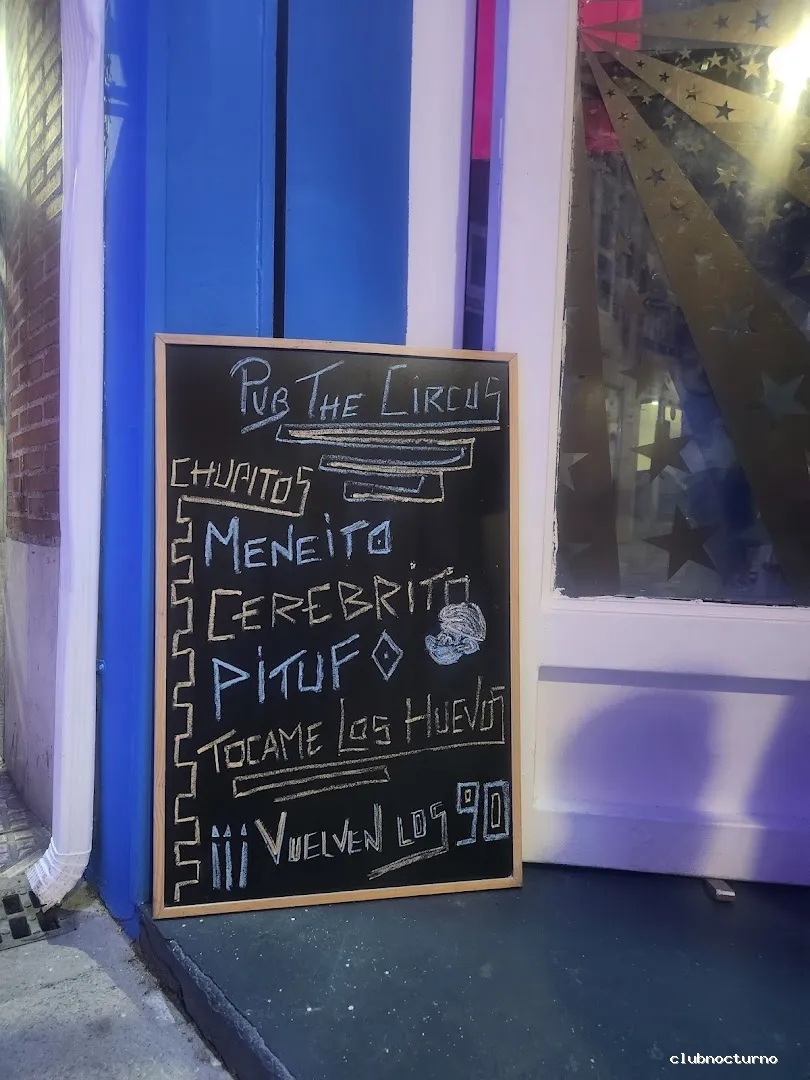 PUB THE CIRCUS
CHUPITOS
MENEITO
CEREBRITO
PITUFO
TOCAME LOS HUEVOS
¡¡¡ VUELVEN LOS 90
clubnocturno